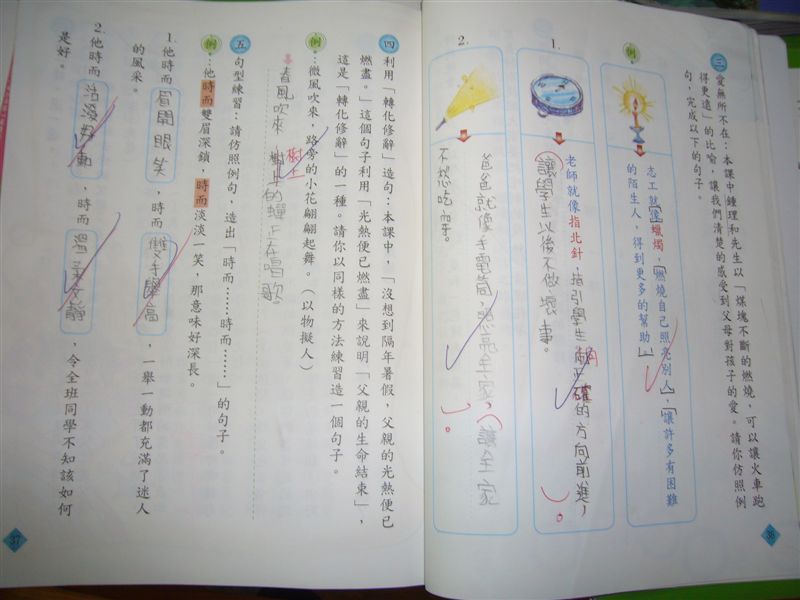 三 愛無所不在:本課中鍾理和先生以「煤塊不斷的燃燒,可以讓火車跑
得更遠」的比喻,讓我們清楚的感受到父母對孩子的愛。請你仿照例
句,完成以下的句子。
例
志工就像蠟燭,燃燒自己照亮別人,讓許多有困難
的陌生人,得到更多的幫助。
1.
老師就像指北針,指引學生朝正確的方向前進,
讓學生以後不做壞事。
2.
爸爸就像手電筒,照亮全家,讓全家
不想吃
38
四 利用「轉化修辭」造句:本課中,「沒想到隔年暑假,父親的光熱便已
燃盡。」這個句子利用「光熱便已燃盡」來說明「父親的生命結束」,
這是「轉化修辭」的一種。請你以同樣的方法練習造一個句子。
例:微風吹來,路旁的小花翩翩起舞。(以物擬人)
春風吹來,樹上的蟬正在唱歌。
五 句型練習:請仿照例句,造出「時而……時而……」的句子。
例:他時而雙眉深鎖,時而淡淡一笑,那意味好深長。
1. 他時而眉開眼笑,時而雙手舉高,一舉一動都充滿了迷人
的風采。
2. 他時而活潑好動,時而溫柔文靜,令全班同學不知該如何
是好。
37